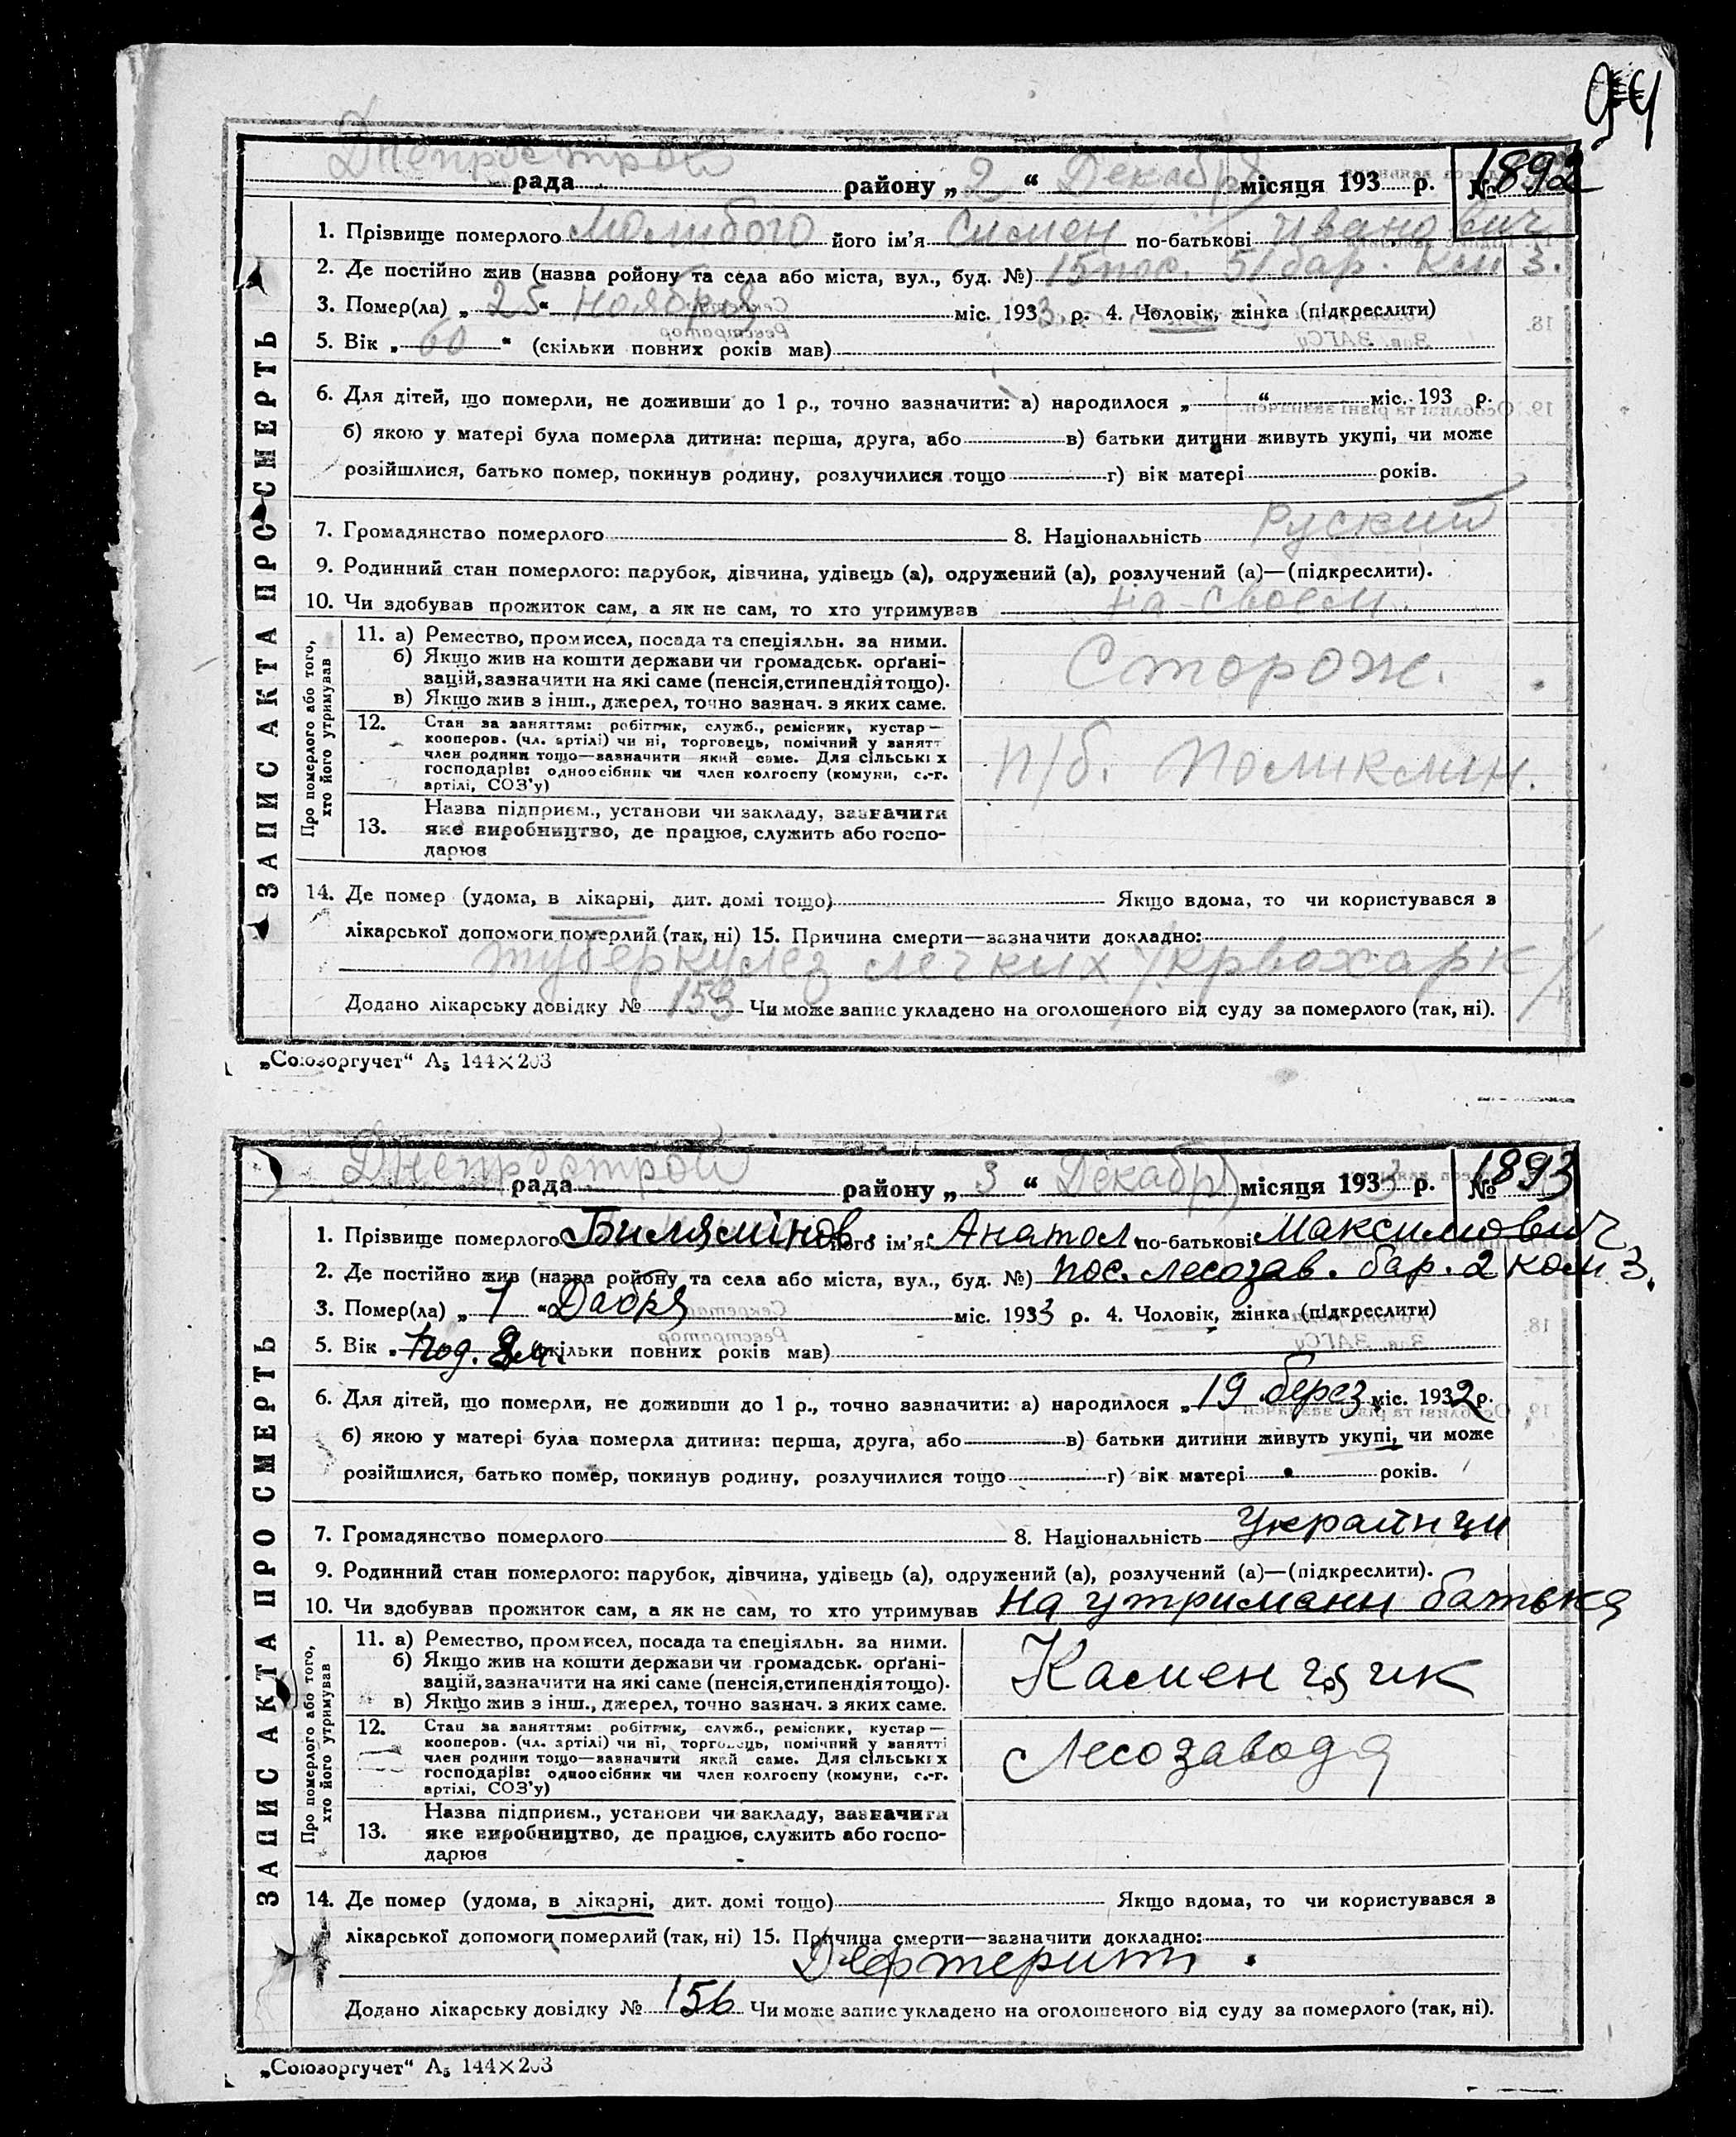 94
Днепрострой
рада района „ 2 “ Декабря місяця 193 р. № 1892
ЗАПИС АКТА ПРО СМЕРТЬ
1. Прізвище померлого Молибого його ім'я Симен по-батькові Иванович
2. Де постійно жив (назва ройону та села або міста, вул., буд. №) 15 пос. 51 бар. ком 3.
3. Помер(ла) „ 25 “ Ноября міс. 1933 р. 4. Чоловік, жінка (підкреслити)
5. Вік „ 60 “ (скільки повних років мав)
6. Для дітей, що померли, не доживши до 1 р., точно зазначити: а) народилося „ “ міс. 193 р.
б) якою у матері була померла дитина: перша, друга, або в) батьки дитини живуть укупі, чи може
розійшлися, батько помер, покинув родину, розлучилися тощо г) вік матері років.
7. Громадянство померлого 8. Національність Руский
9. Родинний стан померлого: парубок, дівчина, удівець (а), одружений (а), розлучений (а)—(підкреслити).
10. Чи здобував прожиток сам, а як не сам, то хто утримував на своем.
Про померлого або того, хто його утримував
11. а) Ремество, промисел, посада та спеціяльн. за ними.
б) Якщо жив на кошти держави чи громадськ. орґані-
зацій, зазначити на які саме (пенсія, стипендія тощо).
в) Якщо жив з інш., джерел, точно зазнач. з яких саме.
Сторож.
12. Стан за заняттям: робітник, служб., ремісник, кустар—
кооперов. (чл. артілі) чи ні, торговець, помічний у занятт
член родини тощо—зазначити який саме. Для сільських
господарів: одноосібник чи член колгоспу (комуни, с.-г.
артілі, СОЗ'у)
п/б. Поликлин.
13. Назва підприєм., установи чи закладу, зазначити
яке виробництво, де працює, служить або госпо-
дарює
14. Де помер (удома, в лікарні, дит. домі тощо) Якщо вдома, то чи користувався з
лікарської допомоги померлий (так, ні) 15. Причина смерти—зазначити докладно:
туберкулез легких /крвохарк/
Додано лікарську довідку № 153 Чи може запис укладено на оголошеного від суду за померлого (так, ні).
„Союзоргучет“ А₅ 144×203
Днепрострой
рада району „ 3 “ Декабря місяця 1933 р. № 1893
ЗАПИС АКТА ПРО СМЕРТЬ
1. Прізвище померлого Билямінов його ім'я Анатол. по-батькові Максимович
2. Де постійно жив (назва ройону та села або міста, вул., буд. №) пос. лесозав. бар. 2 ком 3.
3. Помер(ла) „ 1 “ Дабря міс. 1933 р. 4. Чоловік, жінка (підкреслити)
5. Вік 1 год. 8 м. (скільки повних років мав)
6. Для дітей, що померли, не доживши до 1 р., точно зазначити: а) народилося „ 19 берез. міс. 1932 р.
б) якою у матері була померла дитина: перша, друга, або в) батьки дитини живуть укупі, чи може
розійшлися, батько помер, покинув родину, розлучилися тощо г) вік матері років.
7. Громадянство померлого 8. Національність Украинци
9. Родинний стан померлого: парубок, дівчина, удівець (а), одружений (а), розлучений (а)—(підкреслити).
10. Чи здобував прожиток сам, а як не сам, то хто утримував На утримани батька
Про померлого або того, хто його утримував
11. а) Ремество, промисел, посада та спеціяльн. за ними.
б) Якщо жив на кошти держави чи громадськ. орґані-
зацій, зазначити на які саме (пенсія, стипендія тощо).
в) Якщо жив з інш., джерел, точно зазнач. з яких саме.
12. Стан за заняттям: робітник, служб., ремісник, кустар—
кооперов. (чл. артілі) чи ні, торговець, помічний у занятті
член родини тощо—зазначити який саме. Для сільських
господарів: одноосібник чи член колгоспу (комуни, с.-г.
артілі, СОЗ'у)
Лесозавода
13. Назва підприєм., установи чи закладу, зазначити
яке виробництво, де працює, служить або госпо-
дарює
14. Де помер (удома, в лікарні, дит. домі тощо) Якщо вдома, то чи користувався з
лікарської допомоги померлий (так, ні) 15. Причина смерти—зазначити докладно:
Дефтерит.
Додано лікарську довідку № 156 Чи може запис укладено на оголошеного від суду за померлого (так, ні).
„Союзоргучет“ А₅ 144×203